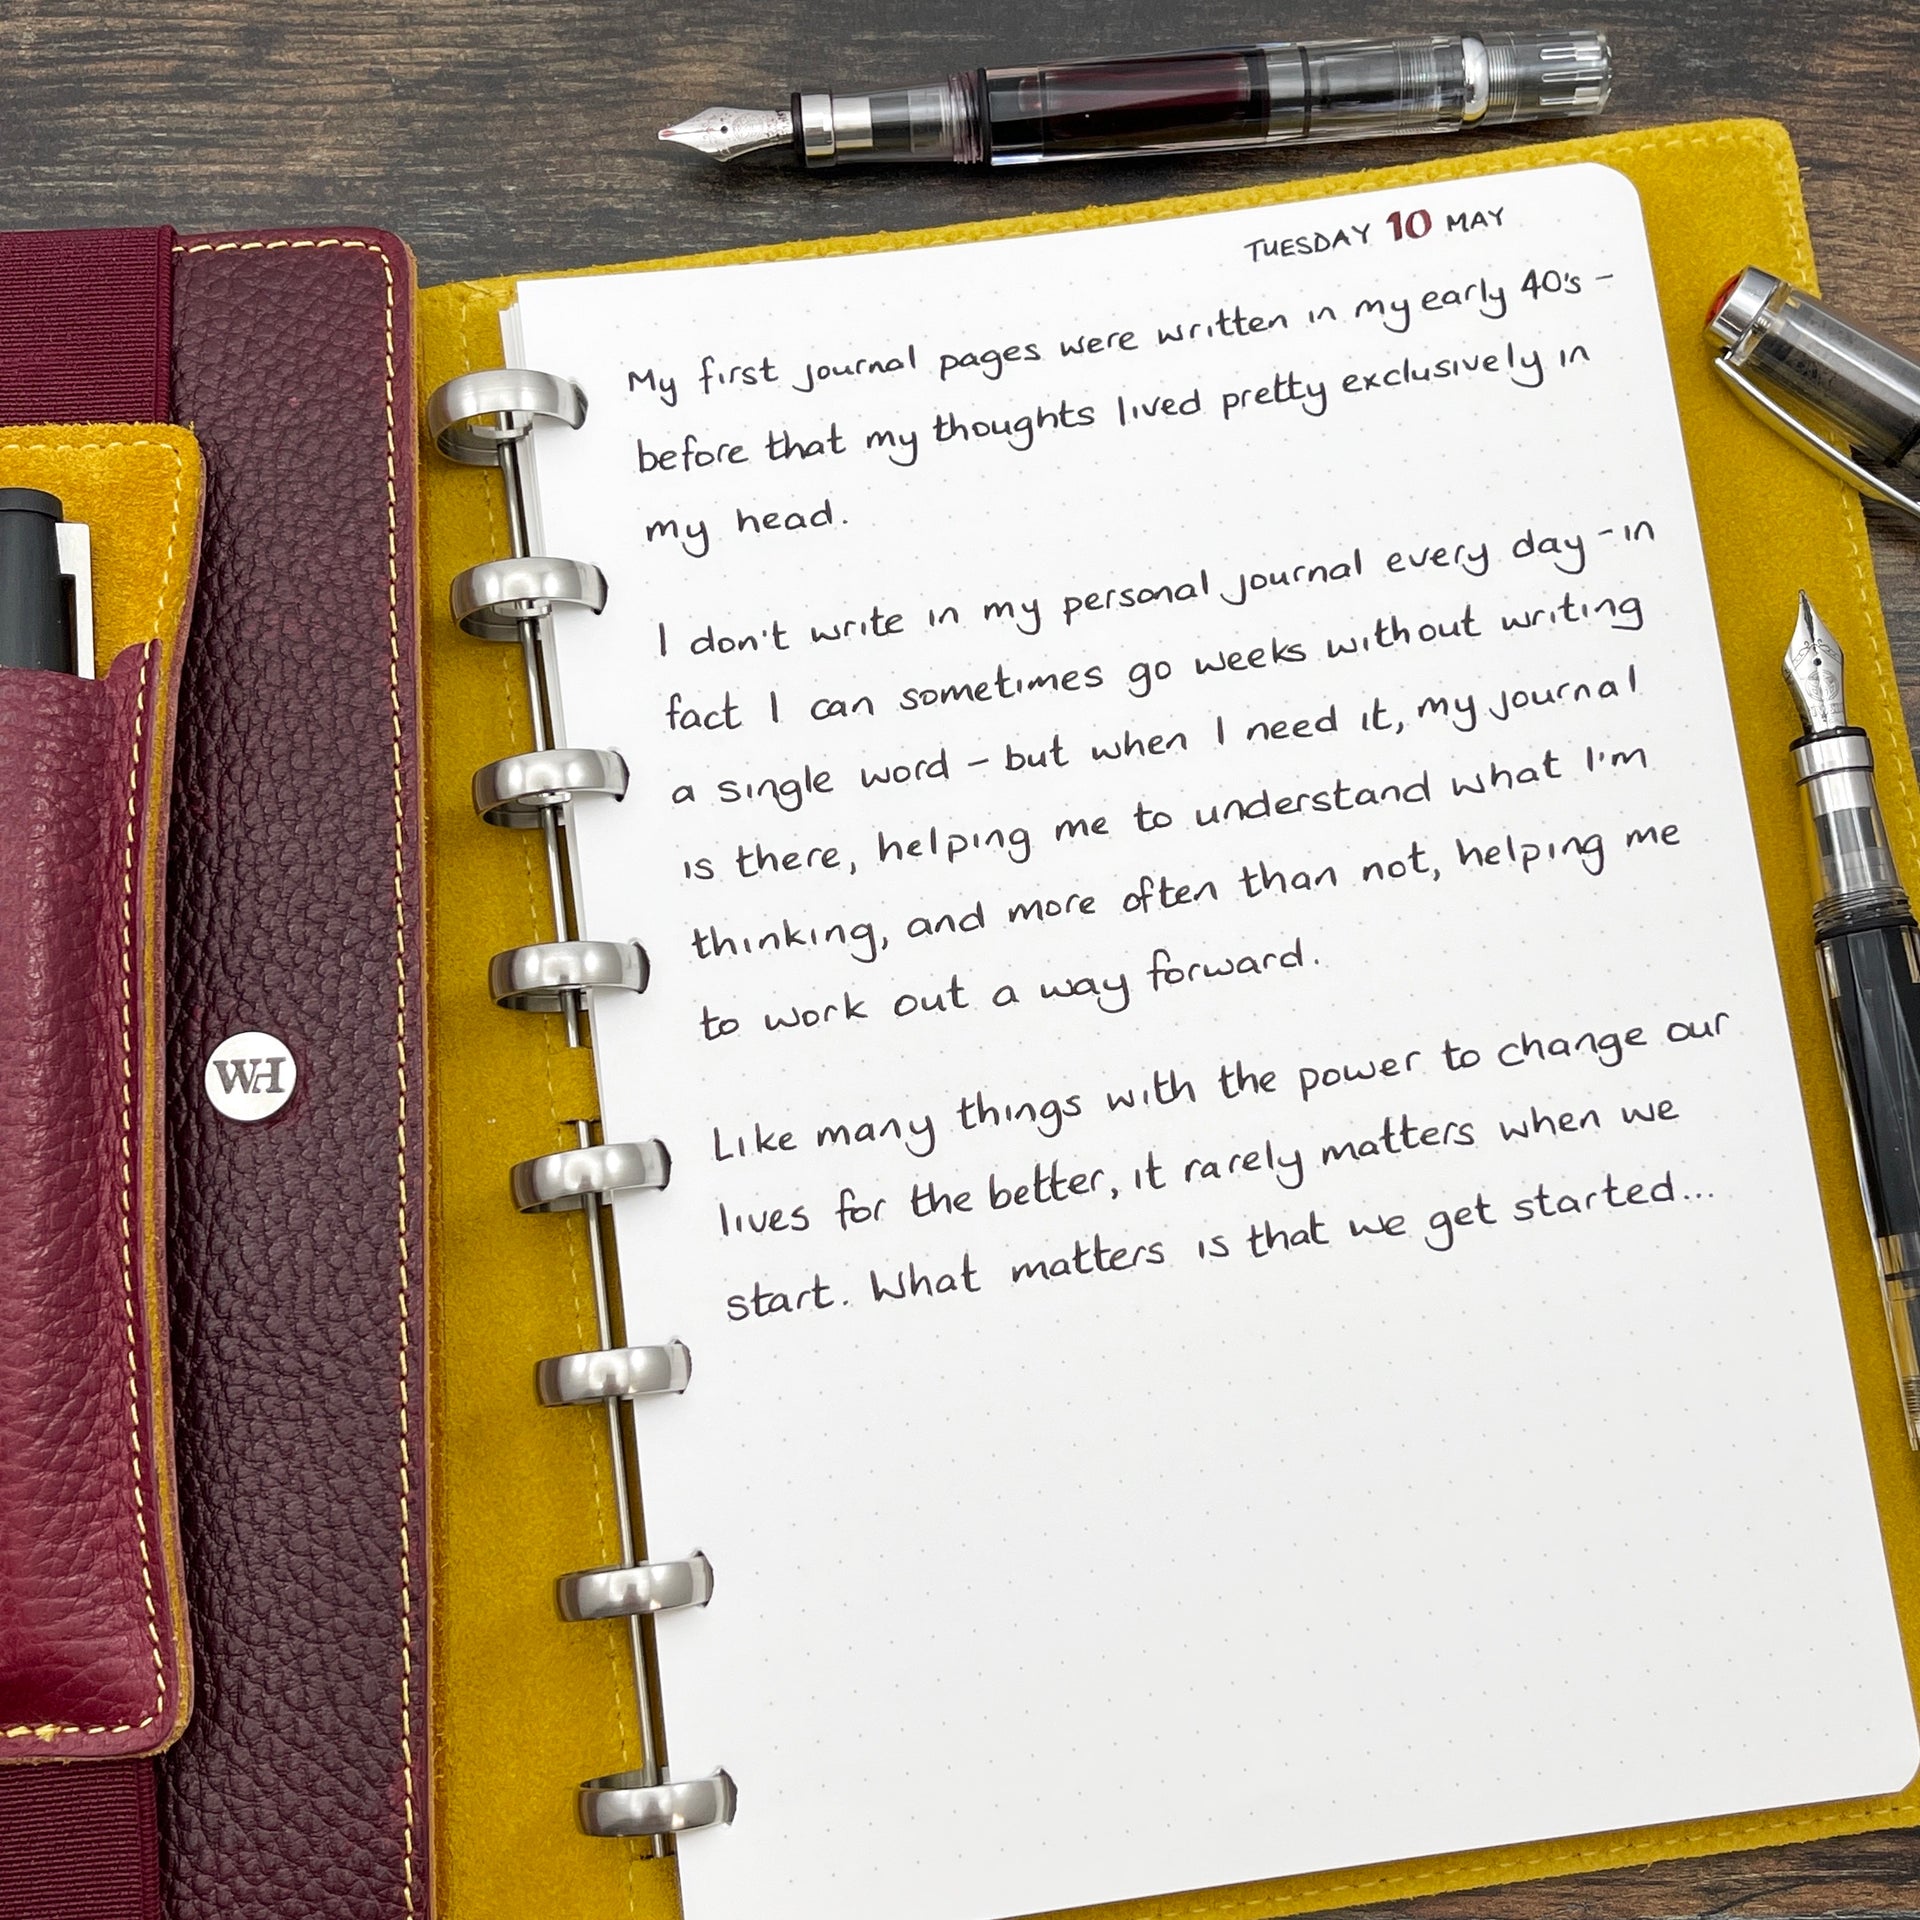 TUESDAY 10 MAY
My first journal pages were written in my early 40's -
before that my thoughts lived pretty exclusively in
my head.
I don't write in my personal journal every day - in
fact I can sometimes go weeks without writing
a single word - but when I need it, my journal
is there, helping me to understand what I'm
thinking, and more often than not, helping me
to work out a way forward.
Like many things with the power to change our
lives for the better, it rarely matters when we
start. What matters is that we get started...
WH